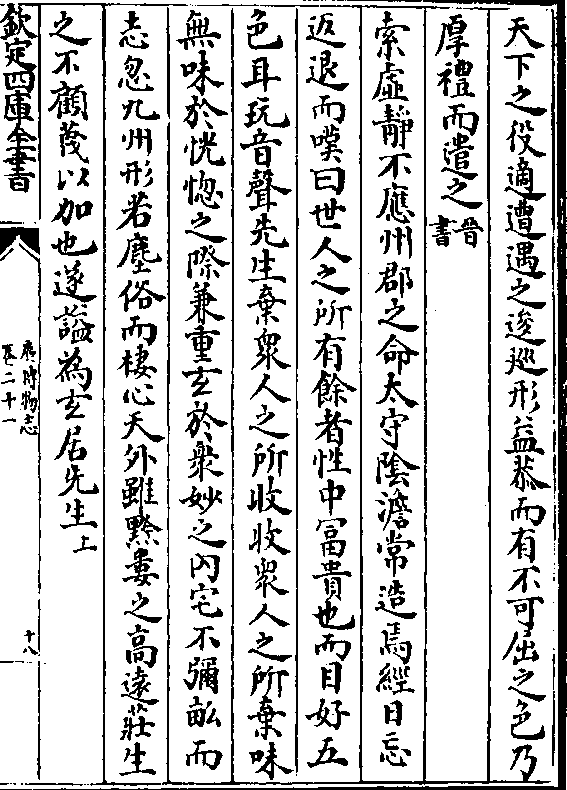 天下之役適遭遇之逡廵形益恭而有不可屈之色乃
厚禮而遣之晉書
索虛靜不應州郡之命太守陰澹常造焉經日忘
返退而嘆曰世人之所有餘者性中冨貴也而目好五
色耳玩音聲先生棄衆人之所收收衆人之所棄味
無味於恍惚之際兼重玄於衆妙之内宅不彌畝而
志忽九州形若塵俗而棲心天外雖黔婁之高遠莊生
之不顧蔑以加也遂諡為玄居先生上
欽定四庫全書
廣博物志
卷二十一
十八